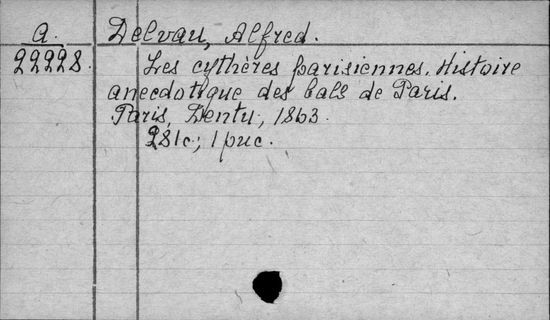 A. Delvau, Alfred.
22228. Les cythères parisiennes. Histoire
anecdotique des bals de Paris.
Paris, Dentu, 1863.
281c.; 1 рис.